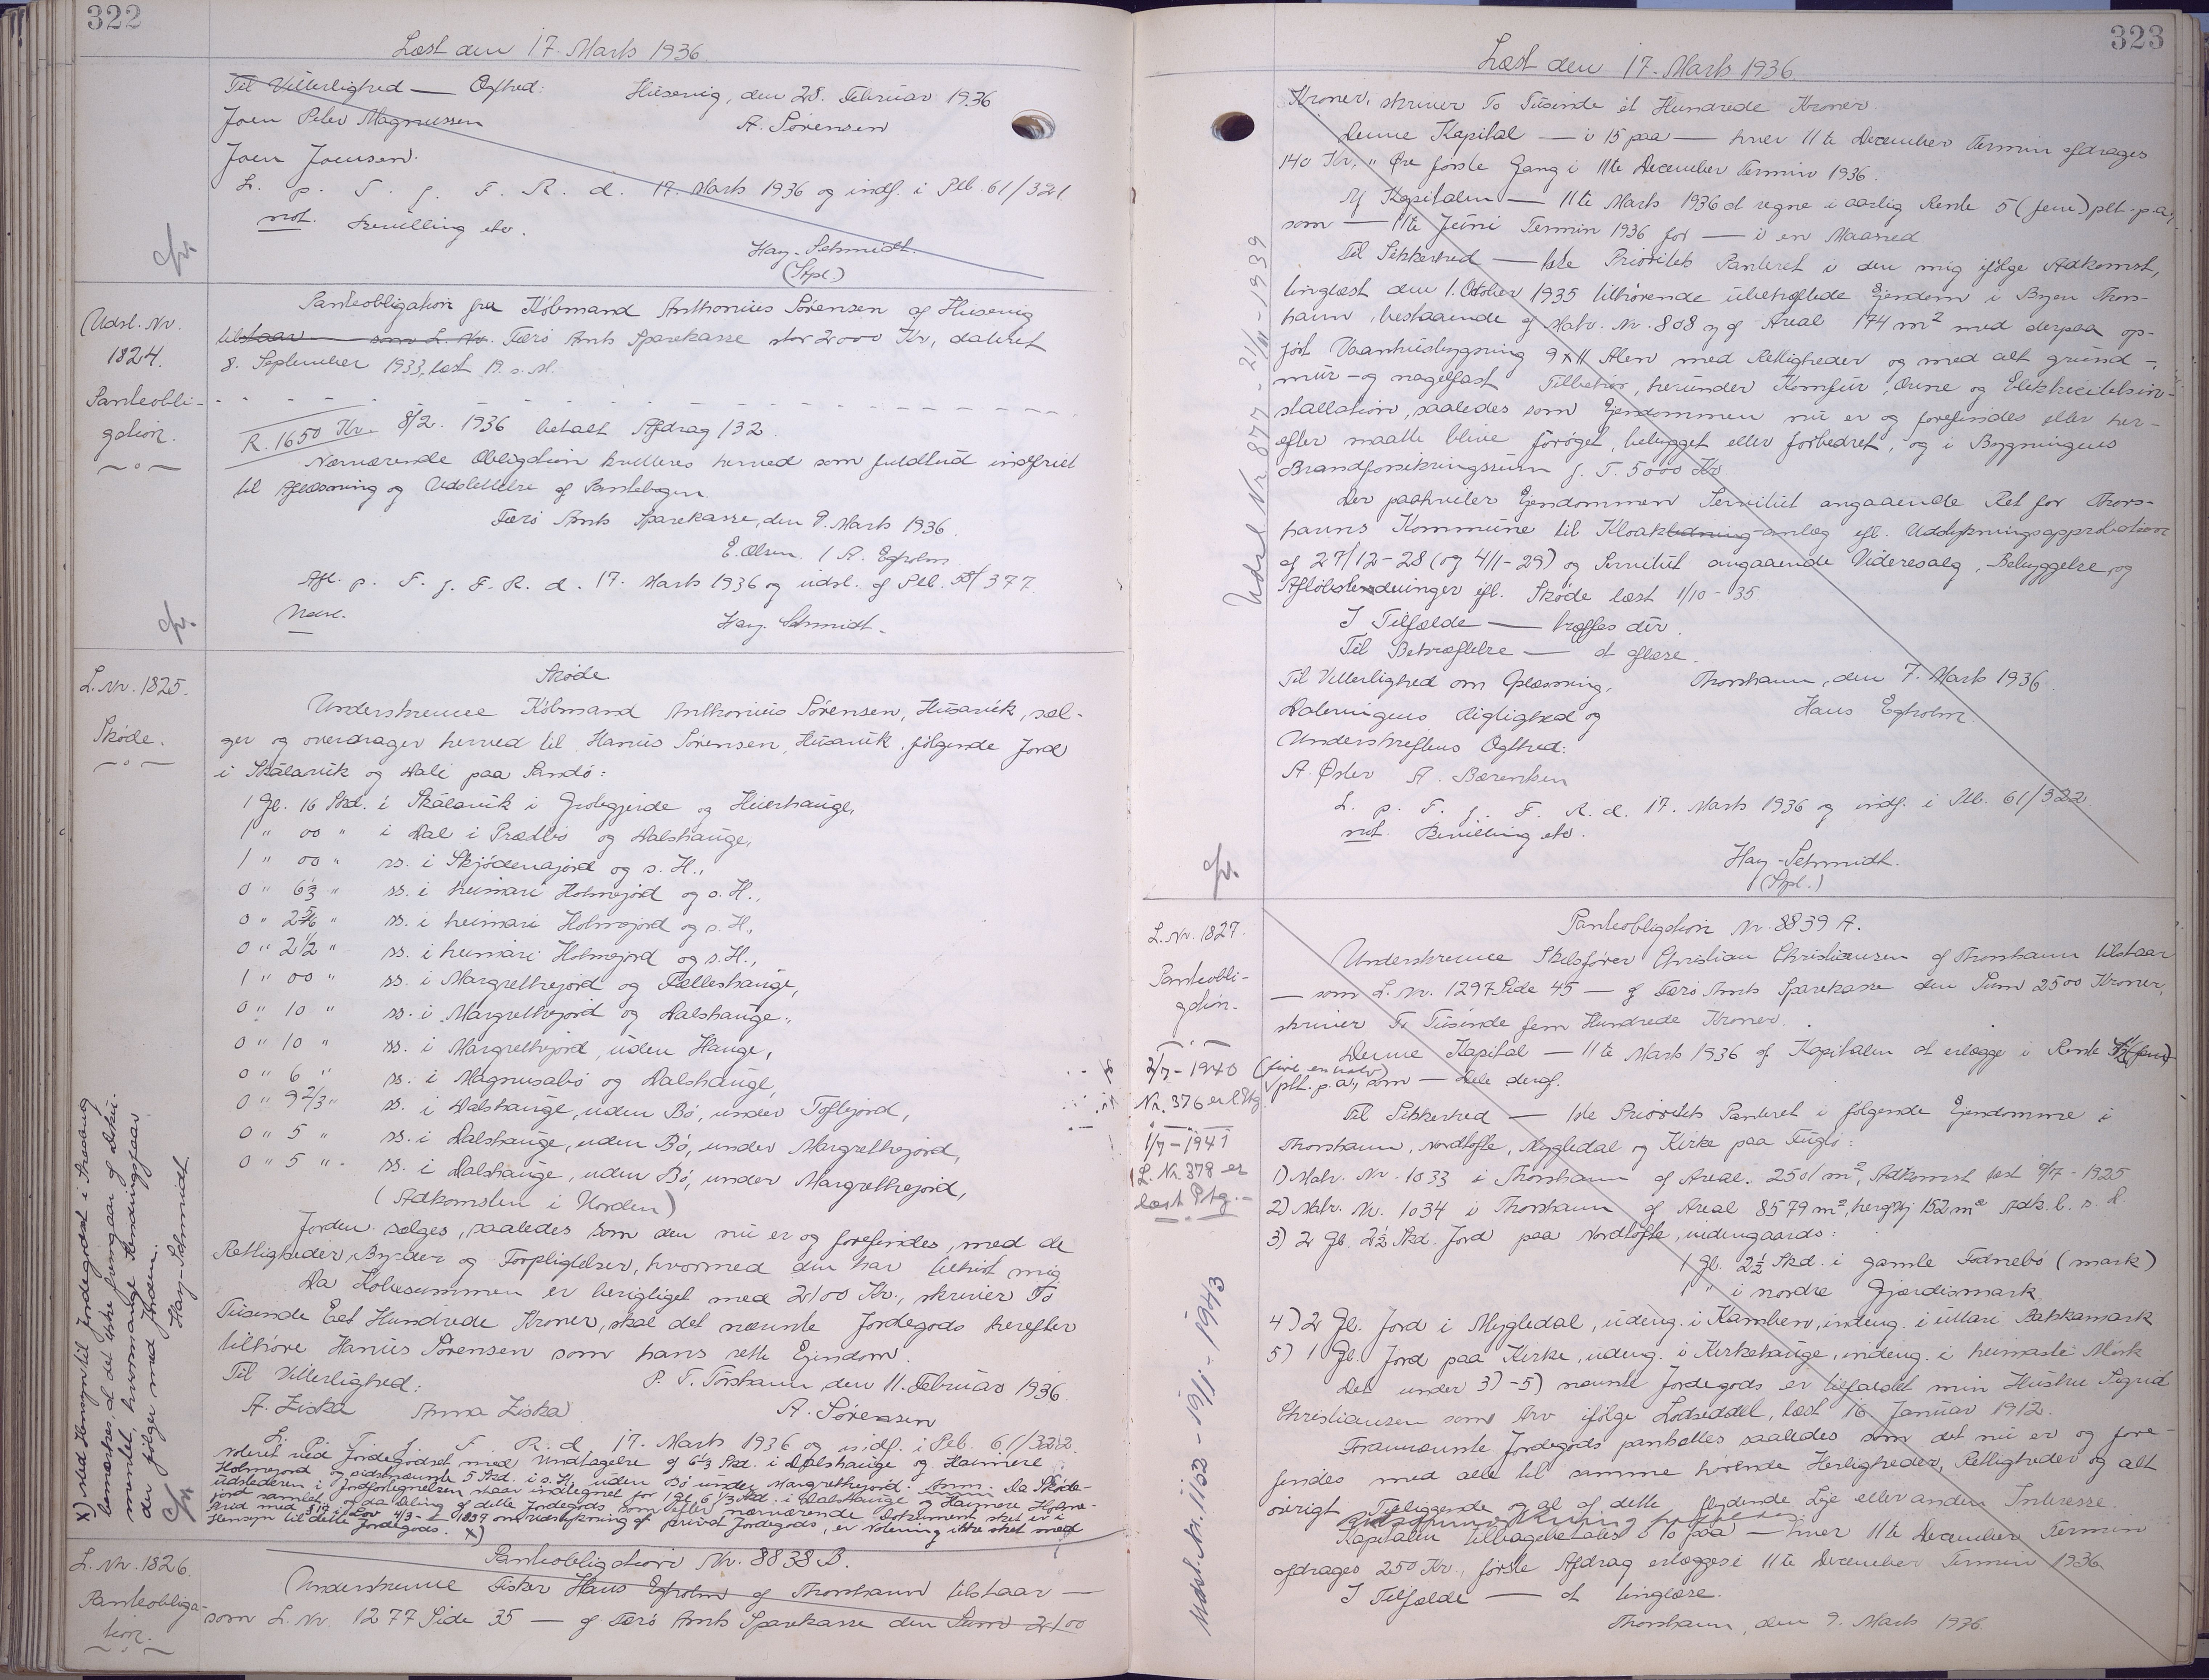 322
Læst den 17. Marts 1936.
Til Vitterlighed — Ægthed: Húsevig, den 28. Februar 1936
Joen Peter Magnussen A. Sørensen
Joen Joensen.
L. p. T. f. F. R. d. 17. Marts 1936 og indf. i Ptb. 61/321
not. Bevilling etc.
Hay-Schmidt.
(Spl.)
Udsl. Nr.
1824.
Panteobli-
gation.
Panteobligation fra Købmand Anthonius Sørensen af Húsevig
tilstaar — som L. Nr. Færø Amts Sparekasse stor 2000 Kr, dateret
8. September 1933, læst 19. s. M.
R. 1650 Kr. 8/2. 1936 betalt Afdrag 132
Nærværende Obligation kvitteres herved som fuldtud indfriet
til Aflæsning og Udslettelse af Pantebogen.
Færø Amts Sparekasse, den 9. Marts 1936.
E. Olsen / A. Egholm
Afl. p. T. f. F. R. d. 17. Marts 1936 og udsl. af Ptb. 377
Hay-Schmidt.
L. Nr. 1825.
Skøde.
Skøde
Underskrevne Købmand Anthonius Sørensen, Húsavík, sæl-
ger og overdrager herved til Hanus Sørensen, Húsavík, følgende Jord
i Skálavík og Dali paa Sandø:
1 Gl. 16 Skd. i Skálavík i Grótegjerde og Heiershauge,
1 " 00 " i Dal i Prædbø og Dalshauge,
1 " 00 " ss. i Skjødenajørd og s. H.,
0 " 6⅓ " ss. i heimari Holmejord og s. H.,
0 " 2 5/6 " ss. i heimari Holmejord og s. H.,
0 " 2 1/2 " ss. i heimari Holmejord og s. H.,
1 " 00 " ss. i Margrethejord og Fælleshauge,
0 " 10 " ss. i Margrethejord og Dalshauge.,
0 " 10 " ss. i Margrethejord, uden Hauge,
0 " 6 " ss. i Magnusabø og Dalshauge,
0 " 9 2/3 " ss. i Dalshauge, uden Bø, under Toftejord,
0 " 5 " ss. i Dalshauge, uden Bø, under Margrethejord,
0 " 5 " ss. i Dalshauge, uden Bø, under Margrethejord,
(Adkomsten i Orden)
Jorden sælges, saaledes som den nu er og forefindes, med de
Rettigheder, Byrder og Forpligtelser, hvormed den har tilhørt mig
Da Købesummen er berigtiget med 2100 Kr., skriver To
Tusinde Eet Hundrede Kroner, skal det nævnte Jordegods herefter
tilhøre Hanus Sørensen som hans rette Ejendom.
Til Vitterlighed: P. T. Tórshavn, den 11. Februar 1936
A. Ziska Anna Ziska A. Sørensen
L. p. T. f. F. R. d. 17. Marts 1936 og indf. i Ptb. 61/322.
Noteret ved Jordegodset, med Undtagelse af 6⅓ Skd. i Dalshauge og Haimere
Holmejord og sidstnævnte 5 Skd. i s. H. uden Bø under Margrethejord. Anm. Da Skøde-
udstederen i Jordfortegnelsen staar indtegnet for 1 Gl. 6 1/3 Skd. i Dalshauge og Haimere Holme-
jord samlet, og da Deling af dette Jordegods som efter nærværende Dokument sket er i
Strid med § 19 i Lov 4/3 - 1857 om Udstykning af privat Jordegods, er Notering ikke sket med
Hensyn til dette Jordegods. X)
X) Med Hensyn til Jordegodset i Præstebø
bemærkes, at det ikke fremgaar af Doku-
mentet, hvormange Sømningsfaar
der følger med Jorden.
Hay-Schmidt
L. Nr. 1826.
Panteobliga-
tion.
Panteobligation Nr. 8838 B.
Underskrevne Fisker Hans Egholm af Thorshavn tilstaar —
som L. Nr. 1277 Side 35 — af Færø Amts Sparekasse den Sum 2100
323
Læst den 17. Marts 1936.
Kroner, skriver To Tusinde ét Hundrede Kroner.
Denne Kapital — i 15 paa — hver 11te December Termin afdrages
140 Kr. " Øre første Gang i 11te December Termin 1936.
Af Kapitalen — 11te Marts 1936 at regne i aarlig Rente 5 (fem) pCt. p.a.,
som — 11te Juni Termin 1936 for — i en Maaned
Til Sikkerhed — 1ste Prioritets Panteret i den mig ifølge Adkomst,
tinglæst den 1. Oktober 1935 tilhørende ubehæftede Ejendom i Byen Thors-
havn, bestaaende af Matr. Nr. 808 af Areal 174 m² med derpaa op-
ført Vaanhusbygning 9 x 11 Alen med Rettigheder og med alt grund-,
mur- og nagelfast Tilbehør, herunder Komfur, Ovne og Elektricitetsin-
stallation, saaledes som Ejendommen nu er og forefindes eller her-
efter maatte blive forøget, bebygget eller forbedret, og i Bygningens
Brandforsikringssum f. T. 5000 Kr
Der paahviler Ejendommen Servitut angaaende Ret for Thors-
havns Kommune til Kloakledning-anlæg efl. Udstykningsapprobation
af 27/12-28 (og 4/1-29) og Servitut angaaende Videresalg, Bebyggelse, og
Afløbsledninger efl. Skøde læst 1/10-35
I Tilfælde — træffes dér.
Til Bekræftelse — at aflæse.
Til Vitterlighed om Oplæsning, Thorshavn, den 7. Marts 1936
Dateringens Rigtighed og Hans Egholm
Underskriftens Ægthed:
A. Øster A. Bærentsen
L. p. T. f. F. R. d. 17. Marts 1936 og indf. i Ptb. 61/322
not. Bevilling etc.
Hay-Schmidt.
(Spl.)
Udsl Nr. 877 - 21/11 - 1939
L. Nr. 1827.
Panteobli-
gation.
2/7 - 1940
Nr. 376 er l. Ptg.
1/7 - 1941
L. Nr. 378 er
læst Ptg. -
Udsl. Nr. 1102 - 19/1 - 1943
Panteobligation Nr. 8839 A.
Underskrevne Skibsfører Christian Christiansen af Thorshavn tilstaar
— som L. Nr. 1297 Side 45 — af Færø Amts Sparekasse den Sum 2500 Kroner,
skriver To Tusinde fem Hundrede Kroner.
Denne Kapital — 11te Marts 1936 af Kapitalen at erlægge i Rente 4½ (fem)
(fire en halv)
pCt. p.a., som — dele deraf.
Til Sikkerhed — 1ste Prioritets Panteret i følgende Ejendomme i
Thorshavn, Nordtofte, Mygledal og Kirke paa Fuglø:
1) Matr. Nr. 1033 i Thorshavn af Areal. 2501 m², Adkomst læst 9/7 - 1925
2) Matr. Nr. 1034 i Thorshavn af Areal 8579 m², heraf Vej 152 m² Adk. l. s. D.
3) 2 Gl. 2½ Skd. Jord paa Nordtofte, indengaards:
1 Gl. 2½ Skd. i gamle Fodnebø (mark)
1 " i nordre Gjærdismark
4) 2 Gl. Jord i Mygledal, udeng. i Kamben, indeng. i uttari Bakkamark
5) 1 Gl. Jord paa Kirke, udeng. i Kirkehauge, indeng. i heimaste Mørk
Det under 3)-5) nævnte Jordegods er tilfaldet min Hustru Sigrid
Christiansen som Arv ifølge Lodseddel, læst 16. Januar 1912.
Forannævnte Jordegods panthættes saaledes som det nu er og fore-
findes med alle til samme hørende Herligheder, Rettigheder og alt
øvrigt Tilliggende og al af dette flydende Leje eller anden Interesse.
Kapitalen tilbagebetales i 10 paa — hver 11te December Termin
afdrages 250 Kr., første Afdrag erlægges i 11te December Termin 1936
I Tilfælde — at tinglæse.
Thorshavn, den 9. Marts 1936